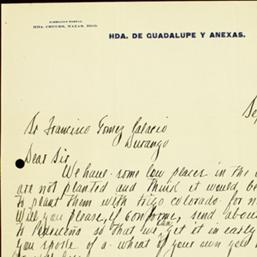 HDA. DE GUADALUPE Y ANEXAS.
Sr Francisco Gomez Palacio
Durango
Dear Sir
We have some low places in the
are not planted and think it would be
to plant them with trigo colorado for
Will you please, if conforme, send
to so that we can get it in early
you spoke of a wheat of your own you